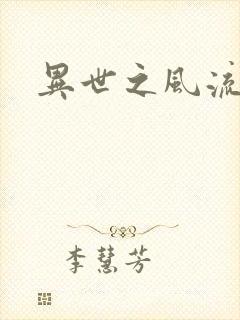 異世之風流
李慧芳